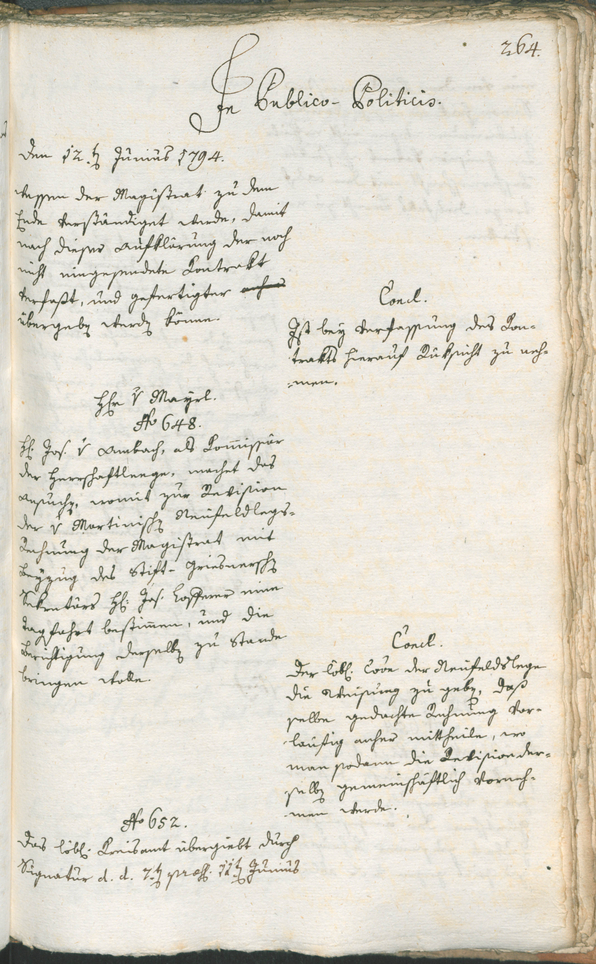 264.
In Publico-Politicis.
Den 12.t Junius 1794.
wessen der Magistrat zu dem
Ende verständiget werde, damit
nach dieser Aufklärung der noch
nicht eingesendete Kontrakt
verfaßt, und gefertigter
übergeben werden könne.
Concl.
Ist bey Verfassung des Kon-
trakts hierauf Rüksicht zu neh-
men.
Hr. v Mayrl.
No 648.
H. Jos. v Ambach, als Kommissär
der Herrschaftleege, machet das
Ansuchen, womit zur Revision
der v Martinischen Neufeldlegs-
Rechnung der Magistrat mit
Beyzug des Stift-Griesnerschen
Sekretärs H. Jos. Kofferer eine
Tagfahrt bestimmen, und die
Berichtigung derselben zu Stande
bringen wolle.
Concl.
Der löbl. Cöve der Neufeldslege
die Weisung zu geben, daß
selbe gedachte Rechnung vor-
läufig anher mittheile, wo
man sodann die Revision der-
selben gemeinschäftlich vorneh-
men werde.
No 652.
Das löbl. Kreisamt übergiebt durch
Signatur d. d. 7.t præs. 11.t Junius